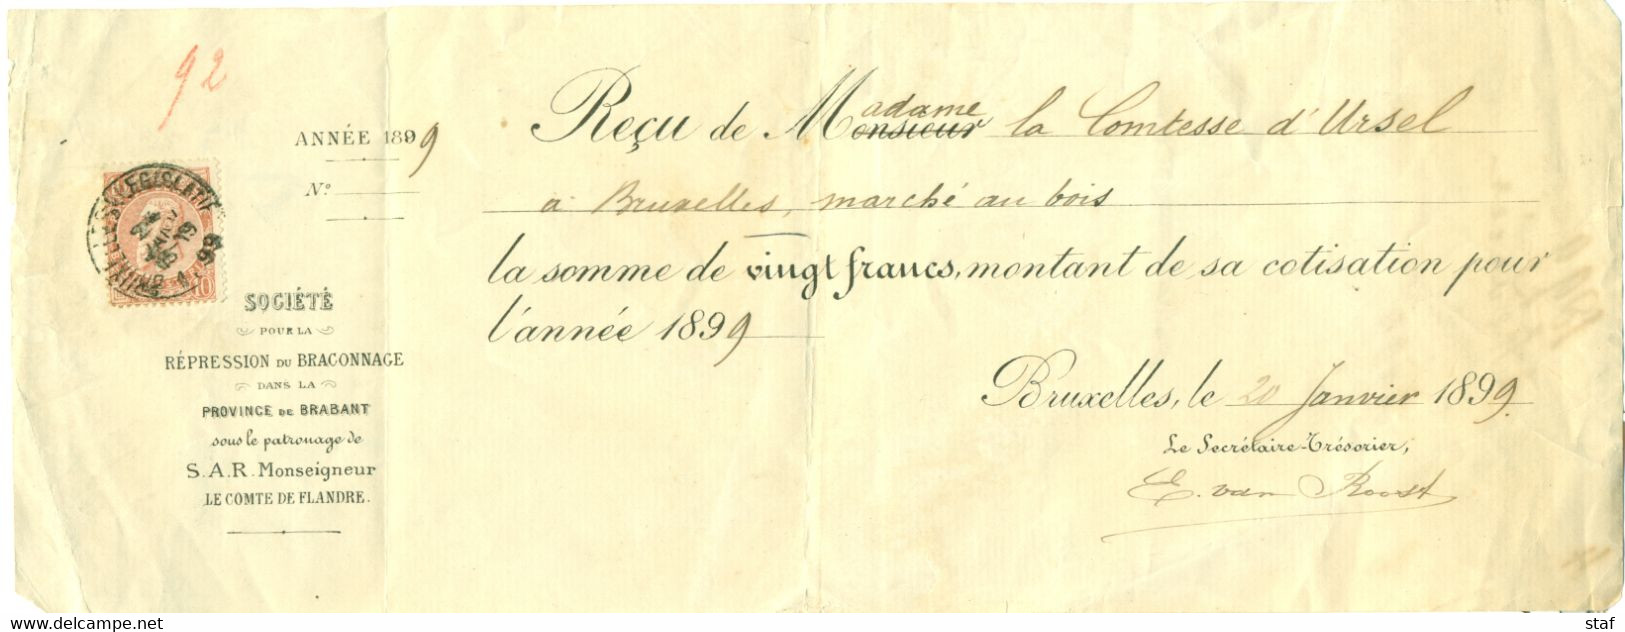 92
ANNÉE 1899
N°
SOCIÉTÉ
POUR LA
RÉPRESSION DU BRACONNAGE
DANS LA
PROVINCE DE BRABANT
sous le patronage de
S.A.R. Monseigneur
LE COMTE DE FLANDRE.
Reçu de Monsieur adame la Comtesse d'Ursel
a Bruxelles, marché au bois
la somme de vingt francs, montant de sa cotisation pour
l'année 1899
Bruxelles, le 20 Janvier 1899.
Le Secrétaire-Trésorier,
E. van Roost
10
www.delcampe.net
staf